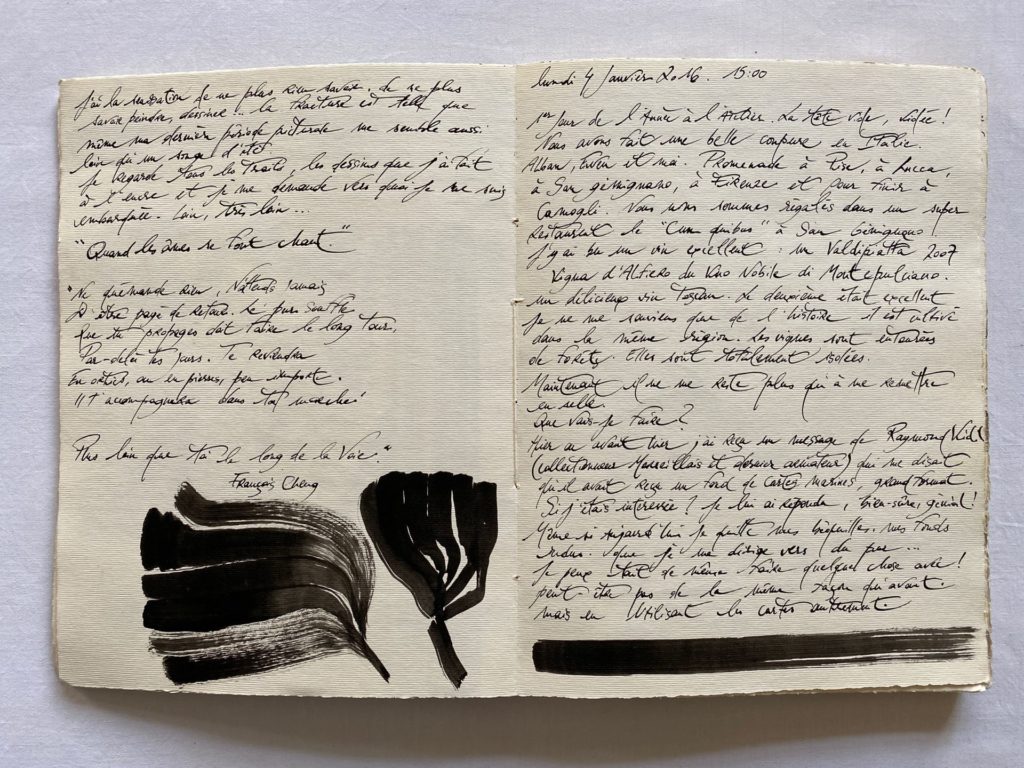 J'ai la sensation de ne plus rien savoir, de ne plus
savoir peindre, dessiner!.. la fracture est telle que
même ma dernière période picturale me semble aussi
loin qu'un songe d'été
Je regarde tous les traits, les dessins que j'ai fait
à l'encre et je me demande vers quoi je me suis
embarquée. Loin, très loin...
"Quand les âmes se font chant."
"Ne quémande rien, N'attends jamais
D'être payé de retour. Le pur souffle
Que tu propages doit faire le long tour,
Par-delà tes jours. Te reviendra
En orties, ou en pierres, peu importe.
Il t'accompagnera dans ton marché
Plus loin que toi le long de la Voie."
François Cheng
lundi 4 Janvier 2016. 15:00
1er jour de l'Année à l'Atelier. La tête vide, vidée!
Nous avons fait une belle coupure en Italie.
Alban, et moi. Promenade à Pise, à Lucca,
à San gimignano, à Firenze et pour finir à
Camogli. Nous nous sommes régalés dans un super
restaurant le "Cum quibus" à San Gimignano
j'y ai bu un vin excellent : un Valdipiatta 2007
Vigna d'Alfiero du Vino Nobile di Montepulciano.
un délicieux vin Toscan. Le deuxième était excellent
je ne me souviens que de l'histoire il est cultivé
dans la même région. Les vignes sont entourées
de forêts. Elles sont totalement isolées.
Maintenant il ne me reste plus qu'à me remettre
en selle.
Que vais-je faire?
Hier ou avant hier j'ai reçu un message de Raymond
(collectionneur Marseillais et dernier) qui me disait
qu'il avait reçu un fond de cartes marines, grand format.
Si j'étais intéressée? Je lui ai répondu, bien-sûre, génial!
Même si aujourd'hui je quitte mes. mes fonds
. que je me dirige vers du pur...
Je peux tout de même faire quelque chose avec!
peut-être pas de la même façon qu'avant.
mais en utilisant les cartes autrement.